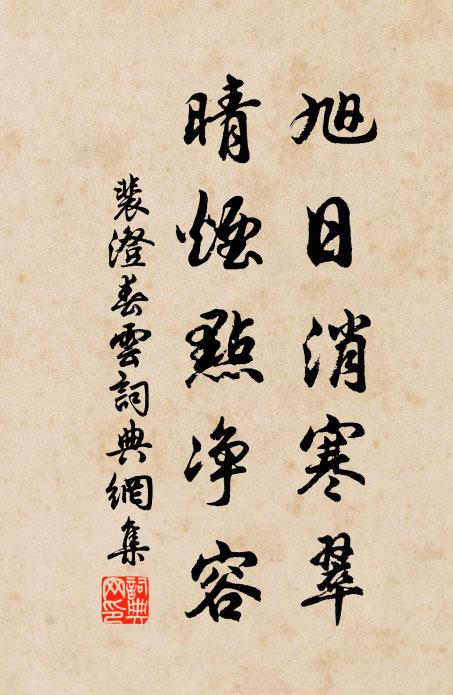 旭日消寒翠
晴煙點净容
裴澄春雲詞典網集
詞典網印